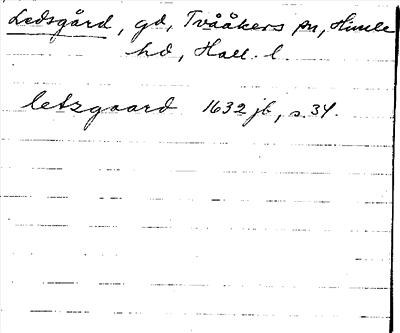 Ledsgård, gd, Tvååkers sn, Himle
hd, Hall. l.
letzgaard 1632 jb, s. 34.